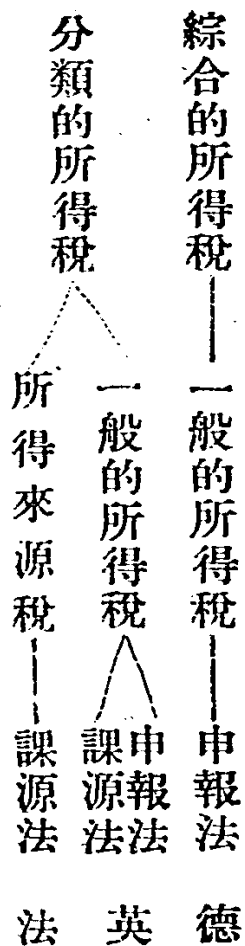 綜合的所得稅——一般的所得稅——申報法 德
分類的所得稅
一般的所得稅
申報法
課源法
英
所得來源稅——課源法 法